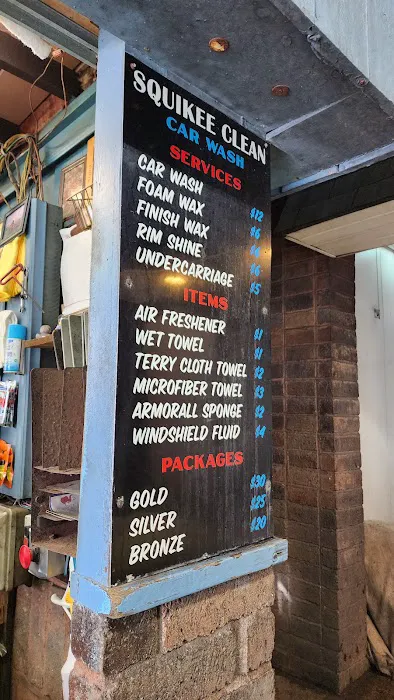 SQUIKEE CLEAN
CAR WASH
SERVICES
CAR WASH $12
FOAM WAX $6
FINISH WAX $6
RIM SHINE $6
UNDERCARRIAGE $5
ITEMS
AIR FRESHENER $1
WET TOWEL $1
TERRY CLOTH TOWEL $2
MICROFIBER TOWEL $3
ARMORALL SPONGE $2
WINDSHIELD FLUID $4
PACKAGES
GOLD $30
SILVER $25
BRONZE $20